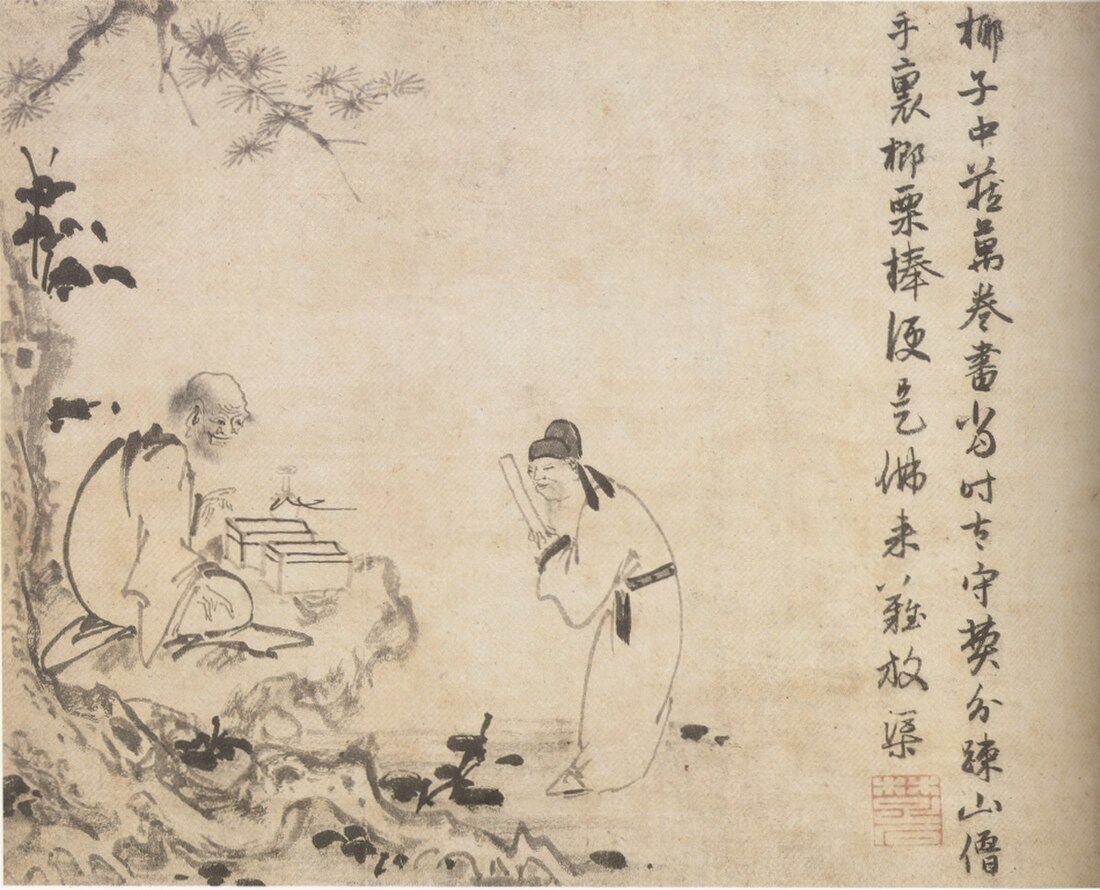 椰子中藏萬卷書當時太守費分踈山僧
手裏榔栗棒便是佛來難放渠